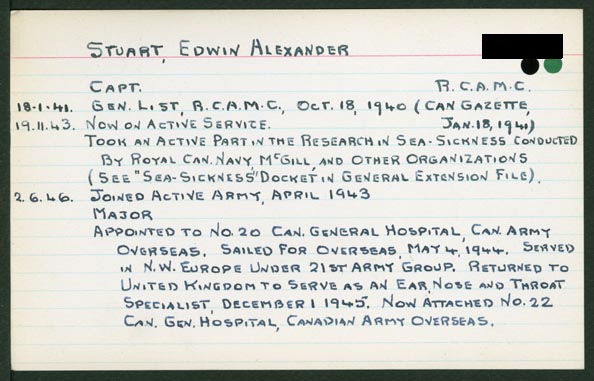 STUART, EDWIN ALEXANDER
CAPT. R.C.A.M.C.
18.1.41. GEN. LIST, R.C.A.M.C., OCT. 18, 1940 (CAN GAZETTE,
19.11.43. NOW ON ACTIVE SERVICE. JAN. 18, 1941)
TOOK AN ACTIVE PART IN THE RESEARCH IN SEA-SICKNESS CONDUCTED
BY ROYAL CAN. NAVY, McGILL, AND OTHER ORGANIZATIONS
(SEE "SEA-SICKNESS" DOCKET IN GENERAL EXTENSION FILE).
2.6.46. JOINED ACTIVE ARMY, APRIL 1943
MAJOR
APPOINTED TO NO. 20 CAN. GENERAL HOSPITAL, CAN. ARMY
OVERSEAS. SAILED FOR OVERSEAS, MAY 4, 1944. SERVED
IN N.W. EUROPE UNDER 21ST ARMY GROUP. RETURNED TO
UNITED KINGDOM TO SERVE AS AN EAR, NOSE AND THROAT
SPECIALIST, DECEMBER 1 1945. NOW ATTACHED NO. 22
CAN. GEN. HOSPITAL, CANADIAN ARMY OVERSEAS.